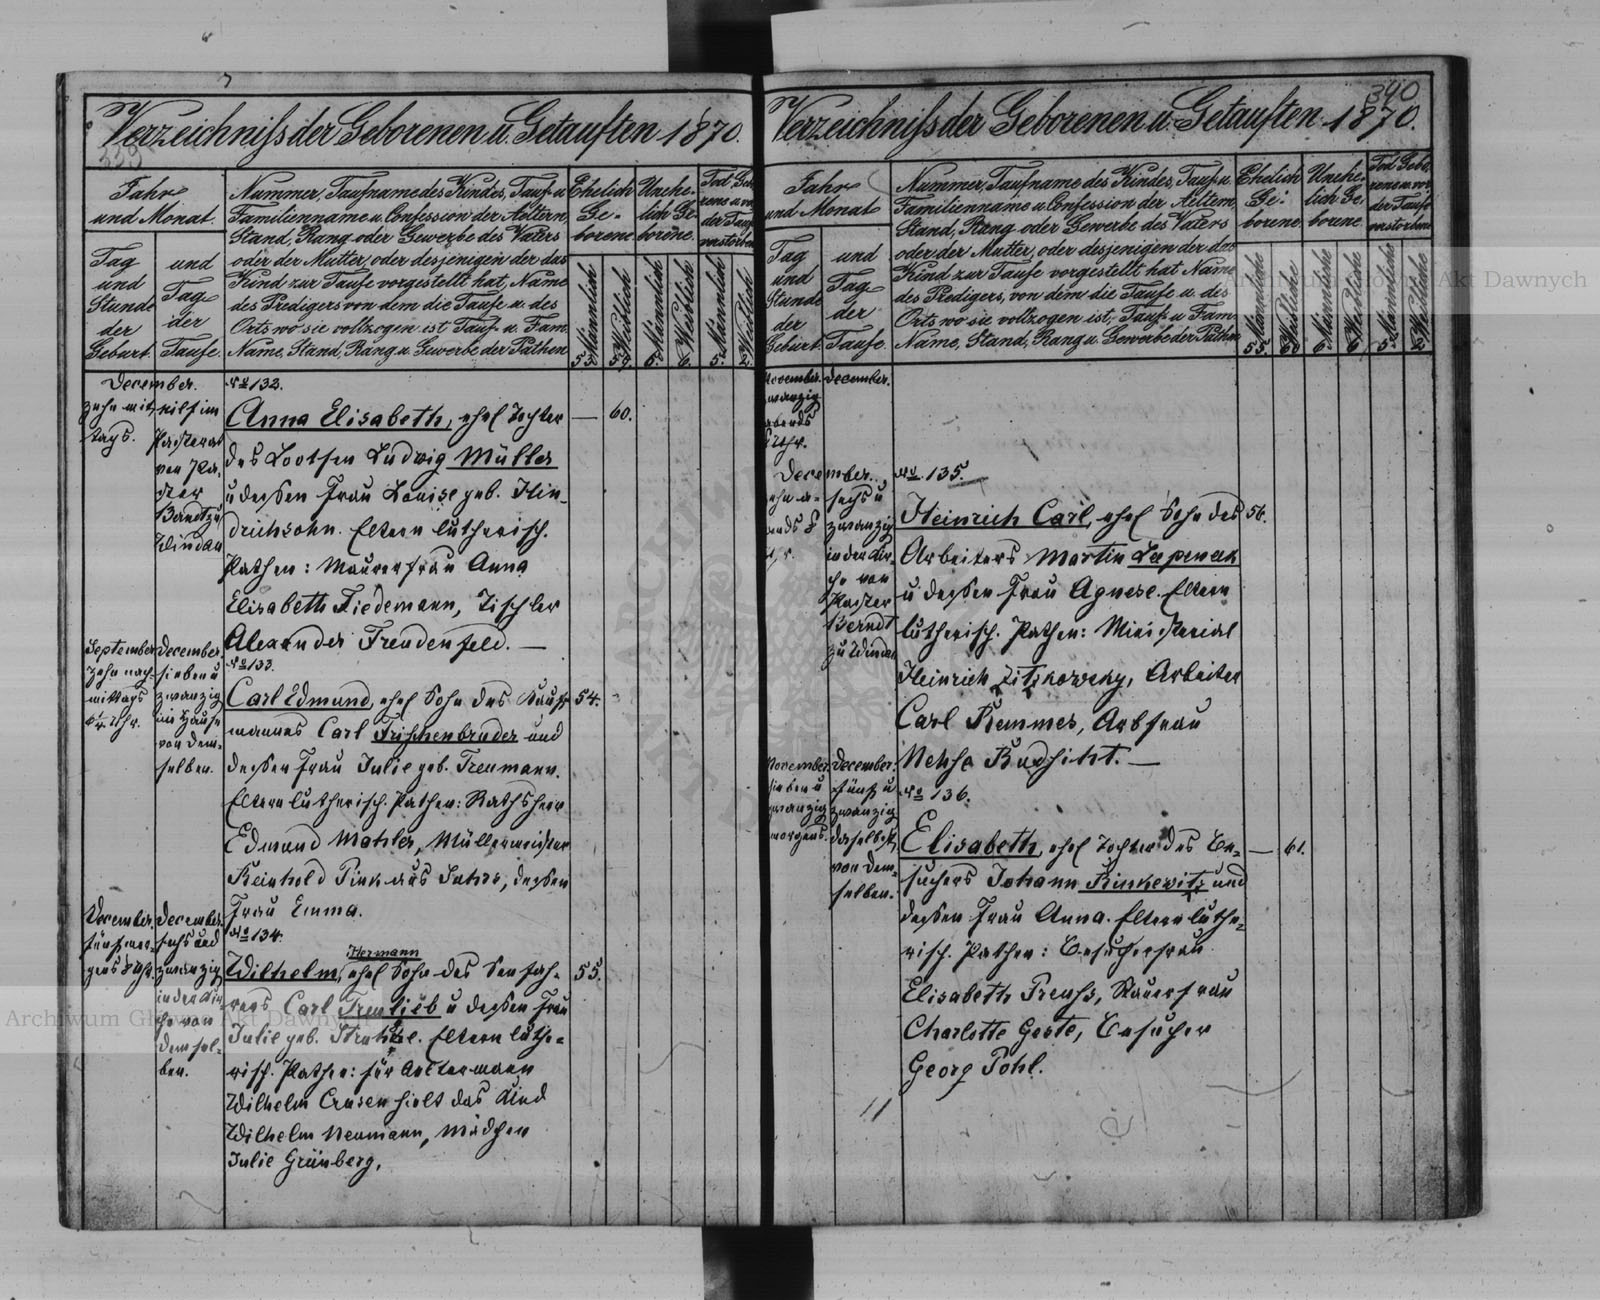 339
Verzeichniss der Geborenen u. Getauften 1870.
Jahr
und Monat
Tag
und
Stunde
der
Geburt.
und
Tag
der
Taufe.
Nummer, Taufname des Kindes, Tauf- u.
Familienname u. Confession der Aeltern
Stand, Rang oder Gewerbe des Vaters
oder der Mutter, oder desjenigen der das
Kind zur Taufe vorgestellt hat, Name
des Predigers von dem die Taufe u. des
Orts wo sie vollzogen ist Tauf- u. Fam.
Name, Stand, Rang u. Gewerbe der Pathen
Ehelich
Ge-
borene
Unehe-
lich Ge-
borene.
Tod Geb
rene u. vor
der Taufe
verstorbene
Männlich
Weiblich
Männlich
Weiblich
Männlich
Weiblich
53. 59. 6. 6. 5. 2.
December.
zehn mit-
tags.
elf im
Pastorat
von Pa-
stor
Berndt zu
Windau
No 132.
Anna Elisabeth, ehel Tochter — 60.
des Lootsen Ludwig Müller
u dessen Frau Louise geb. Hin-
drichsohn. Eltern lutherisch.
Pathen: Maurerfrau Anna
Elisabeth Tiedemann, Tischler
Alexander Freudenfeld. —
September
zehn nach-
mittags
Uhr.
December
sieben u
zwanzig
im Hause
von dem-
selben.
No 133.
Carl Edmund, ehel Sohn des Kauf- 54.
mannes Carl Frischenbruder und
dessen Frau Julie geb. Treumann.
Eltern lutherisch. Pathen: Rathsherr
Edmund Mahler, Müllermeister
Reinhold Pink aus Sahrs, dessen
Frau Emma.
December.
fünf mor-
gens 8 Uhr.
December.
sechs und
zwanzig
in der Kir-
che von
demsel-
ben.
No 134.
Hermann
Wilhelm, ehel Sohn des Seefah- 55.
rers Carl Treulieb u dessen Frau
Julie geb. Eltern luthe-
risch. Pathen: für Aeltermann
Wilhelm Crusen hielt das Kind
Wilhelm Neumann, Mädchen
Julie Grünberg.
340
Verzeichniss der Geborenen u. Getauften 1870.
Jahr
und Monat
Tag
und
Stunde
der
Geburt.
und
Tag
der
Taufe.
Nummer, Taufname des Kindes, Tauf- u.
Familienname u. Confession der Aeltern
Stand, Rang oder Gewerbe des Vaters
oder der Mutter, oder desjenigen der das
Kind zur Taufe vorgestellt hat Name
des Predigers, von dem die Taufe u. des
Orts wo sie vollzogen ist, Tauf- u. Fam-
Name, Stand, Rang u. Gewerbe der Pathen
Ehelich
Ge-
borene.
Unehe-
lich Ge-
borene.
Tod Gebo-
rene u. vor
der Taufe
verstorbene
Männliche
Weibliche
Männliche
Weibliche
Männliche
Weibliche
55. 60 6. 6. 5. 2.
November.
zwanzig
abends
Uhr.
December.
December.
zehn a-
bends 8
Uhr.
sechs u
zwanzig
in der Kir-
che von
Pastor
Berndt
zu Windau
No 135.
Heinrich Carl, ehel Sohn des 56.
Arbeiters Martin Lapenak
u dessen Frau Agnese. Eltern
lutherisch. Pathen: Ministerial
Heinrich Zitzkowsky, Arbeiter
Carl Remmes, Arbfrau
Nehse Budhikt. —
November
sieben u
zwanzig
morgens.
December.
fünf u
zwanzig
daselbst,
von dem-
selben.
No 136.
Elisabeth, ehel Tochter des Be- — 61.
suchers Johann Rinkewitz und
dessen Frau Anna. Eltern luthe-
risch. Pathen: Besucherfrau
Elisabeth Preuhs, Bauerfrau
Charlotte Geste, Besucher
Georg Pohl.
11
Archiwum Główne Akt Dawnych
Archiwum Główne Akt Dawnych